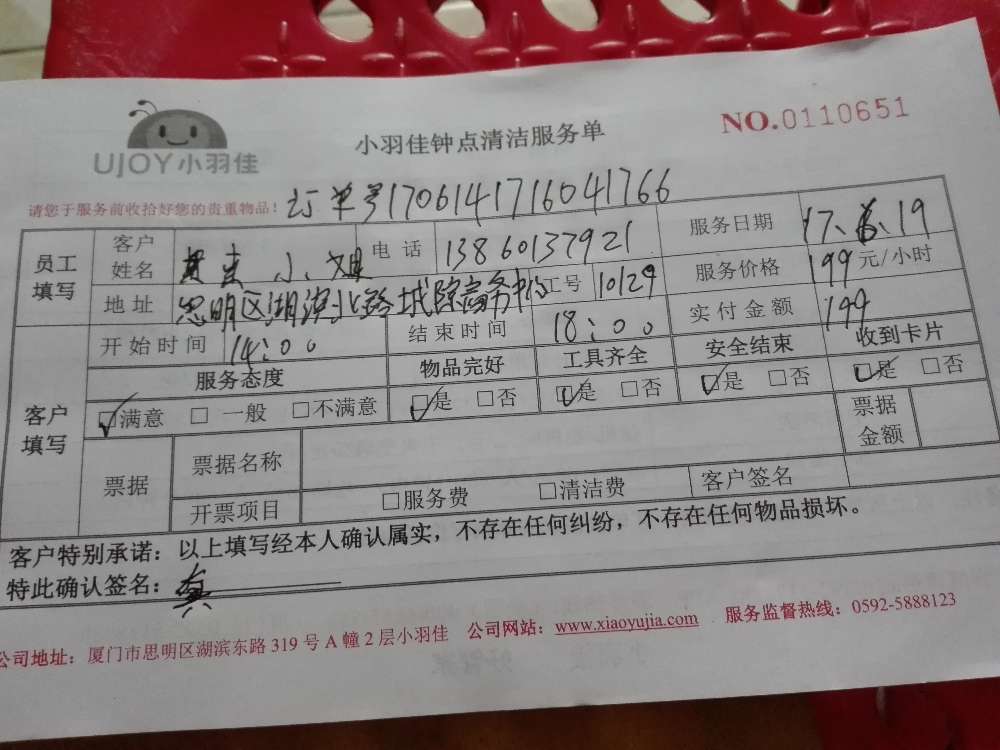 UJOY小羽佳
小羽佳钟点清洁服务单
NO.0110651
请您于服务前收拾好您的贵重物品！ 订单号170614171604​1766
员工填写 客户姓名 小姐 电话 13860137921 服务日期 17.6.19
地址 思明区湖滨北路 工号 10129 服务价格 199 元/小时
开始时间 14:00 结束时间 18:00 实付金额 199
客户填写 服务态度 物品完好 工具齐全 安全结束 收到卡片
☑满意 □ 一般 □不满意 ☑是 □否 ☑是 □否 ☑是 □否 ☑是 □否
票据 票据名称 票据金额
开票项目 □服务费 □清洁费 客户签名
客户特别承诺：以上填写经本人确认属实，不存在任何纠纷，不存在任何物品损坏。
特此确认签名：
公司地址：厦门市思明区湖滨东路 319 号 A 幢 2 层小羽佳 公司网站：www.xiaoyujia.com 服务监督热线：0592-5888123